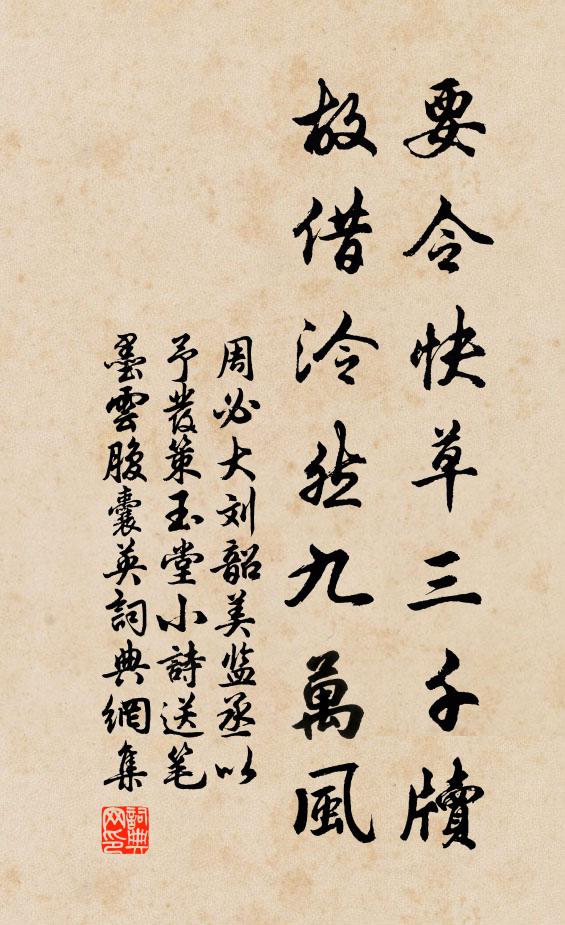 要令快草三千牘
故借泠然九萬風
周必大刘韶美监丞以
予發策玉堂小詩送笔
墨雲腴囊英詞典網集
詞典
网印